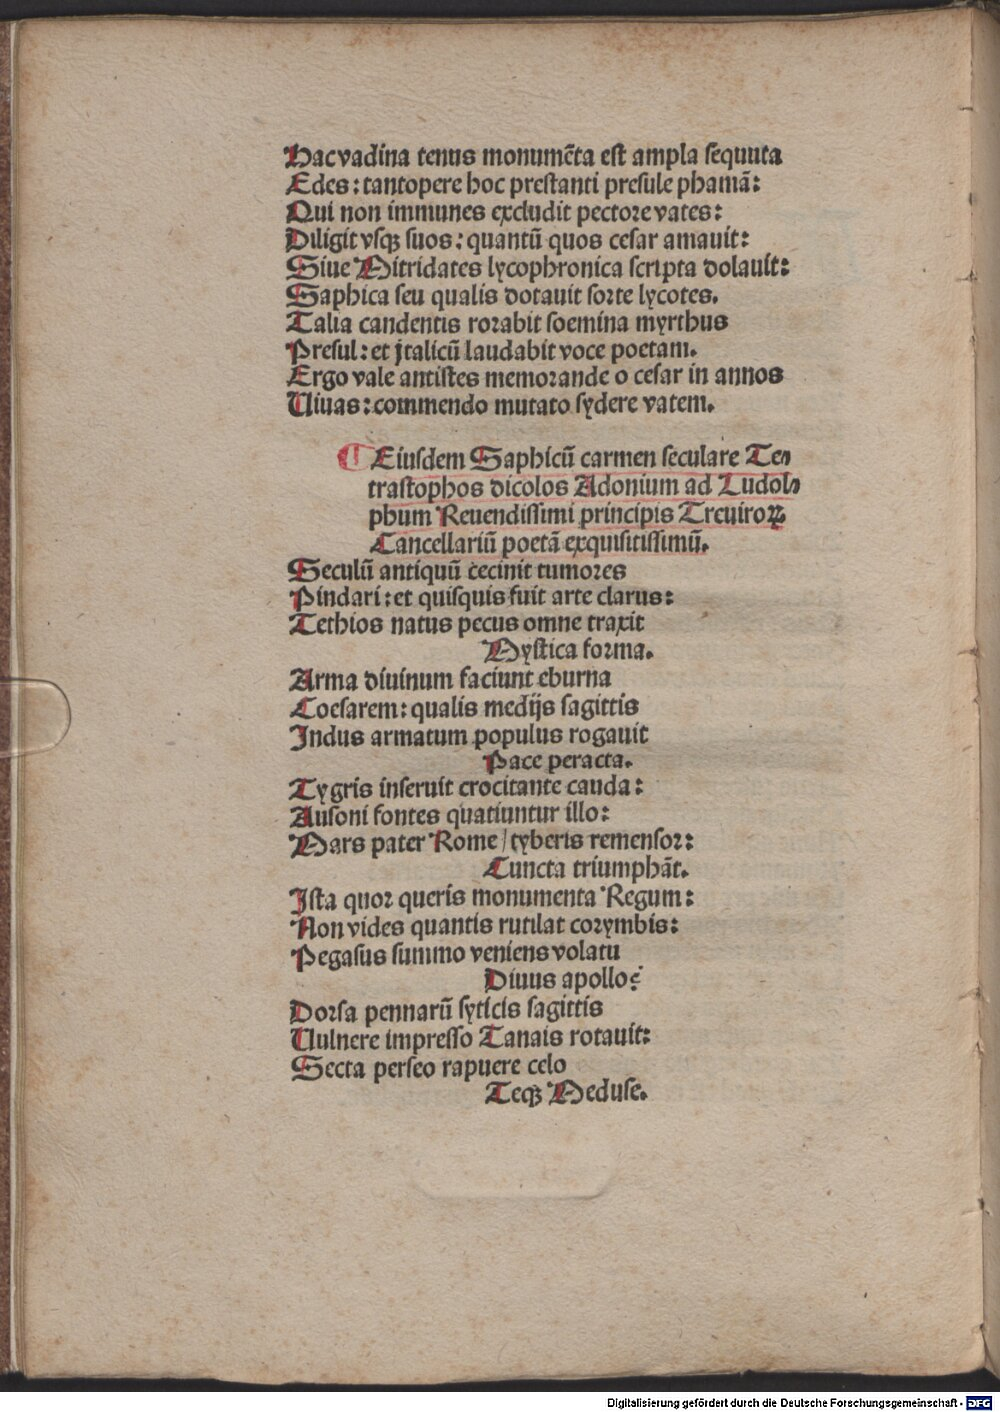 Hac vadina tenus monumēta est ampla sequuta
Edes: tantopere hoc prestanti presule phamā:
Qui non immunes excludit pectore vates:
Diligit vsqꝫ suos: quantū quos cesar amauit:
Siue Mitridates lycophronica scripta dolauit:
Saphica seu qualis dotauit sorte lycotes.
Talia candentis rorabit soemina myrthus
Presul: et jtalicū laudabit voce poetam.
Ergo vale antistes memorande o cesar in annos
Uiuas: commendo mutato sydere vatem.
¶ Eiusdem Saphicū carmen seculare Te⸗
trastophos dicolos Adonium ad Ludol⸗
phum Reuendissimi principis Treuiroꝝ
Cancellariū poetā exquisitissimū.
Seculū antiquū cecinit tumores
Pindari: et quisquis fuit arte clarus:
Tethios natus pecus omne traxit
Mystica forma.
Arma diuinum faciunt eburna
Coesarem: qualis medijs sagittis
Indus armatum populus rogauit
Pace peracta.
Tygris inseruit crocitante cauda:
Ausoni fontes quatiuntur illo:
Mars pater Rome / tyberis remensor:
Cuncta triumphāt.
Ista quor queris monumenta Regum:
Non vides quantis rutilat corymbis:
Pegasus summo veniens volatu
Diuus apollo?
Dorsa pennarū syticis sagittis
Uulnere impresso Tanais rotauit:
Secta perseo rapuere celo
Teqꝫ Meduse.
Digitalisierung gefördert durch die Deutsche Forschungsgemeinschaft - DFG